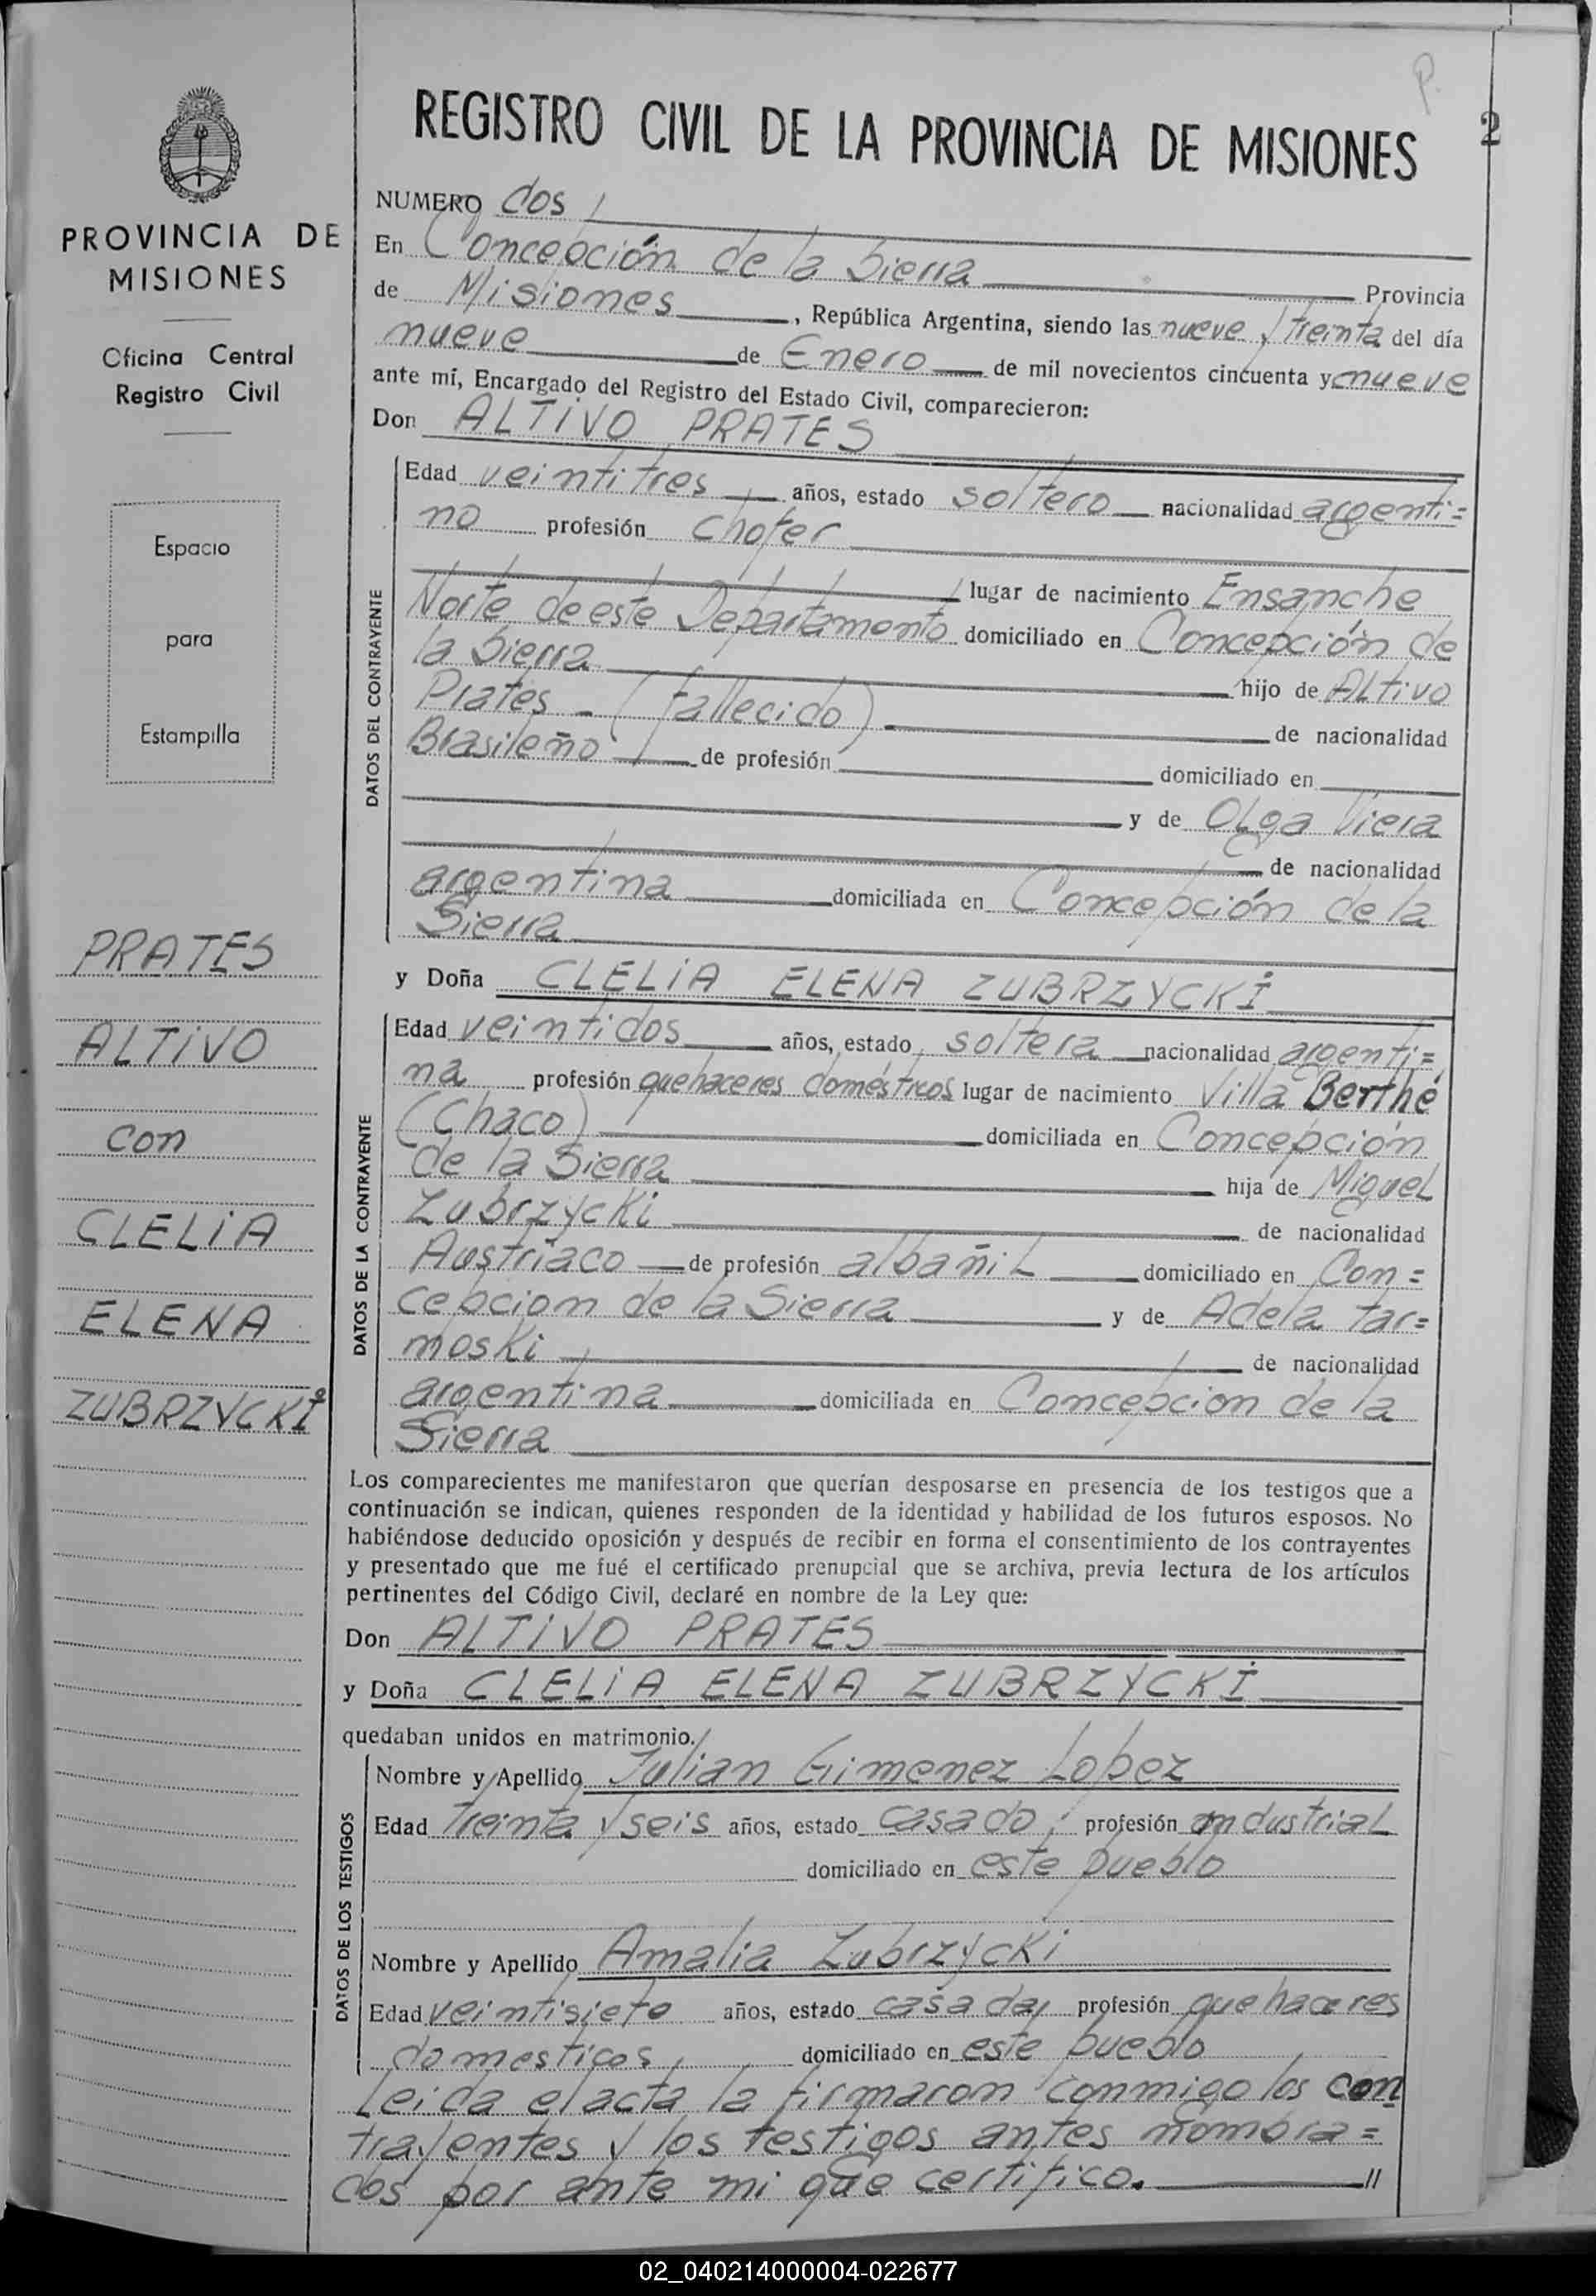 P.
2
REGISTRO CIVIL DE LA PROVINCIA DE MISIONES
PROVINCIA DE
MISIONES
Oficina Central
Registro Civil
Espacio
para
Estampilla
PRATES
ALTIVO
con
CLELIA
ELENA
ZUBRZYCKI
NUMERO dos
En Concepción de la Sierra Provincia
de Misiones, República Argentina, siendo las nueve y treinta del día
nueve de Enero de mil novecientos cincuenta y nueve
ante mí, Encargado del Registro del Estado Civil, comparecieron:
Don ALTIVO PRATES
DATOS DEL CONTRAYENTE
Edad veintitres años, estado soltero nacionalidad argenti=
no profesión chofer
lugar de nacimiento Ensanche
Norte de este Departamento domiciliado en Concepción de
la Sierra hijo de Altivo
Prates - (fallecido) de nacionalidad
Brasileño de profesión domiciliado en
y de Olga Viera
de nacionalidad
argentina domiciliada en Concepción de la
Sierra
y Doña CLELIA ELENA ZUBRZYCKI
DATOS DE LA CONTRAYENTE
Edad veintidos años, estado soltera nacionalidad argenti=
na profesión quehaceres domésticos lugar de nacimiento Villa Berthé
(Chaco) domiciliada en Concepción
de la Sierra hija de Miguel
Zubrzycki de nacionalidad
Austriaco de profesión albañil domiciliado en Con=
cepcion de la Sierra y de Adela Tar=
moski de nacionalidad
argentina domiciliada en Concepcion de la
Sierra
Los comparecientes me manifestaron que querían desposarse en presencia de los testigos que a
continuación se indican, quienes responden de la identidad y habilidad de los futuros esposos. No
habiéndose deducido oposición y después de recibir en forma el consentimiento de los contrayentes
y presentado que me fué el certificado prenupcial que se archiva, previa lectura de los artículos
pertinentes del Código Civil, declaré en nombre de la Ley que:
Don ALTIVO PRATES
y Doña CLELIA ELENA ZUBRZYCKI
quedaban unidos en matrimonio.
DATOS DE LOS TESTIGOS
Nombre y Apellido Julian Gimenez Lopez
Edad treinta y seis años, estado casado, profesión industrial
domiciliado en este pueblo
Nombre y Apellido Amalia Zubrzycki
Edad veintisiete años, estado casada, profesión quehaceres
domesticos, domiciliado en este pueblo
Leida el acta la firmaron conmigo los con
trayentes y los testigos antes nombra=
dos por ante mi que certifico. //
02_040214000004-022677